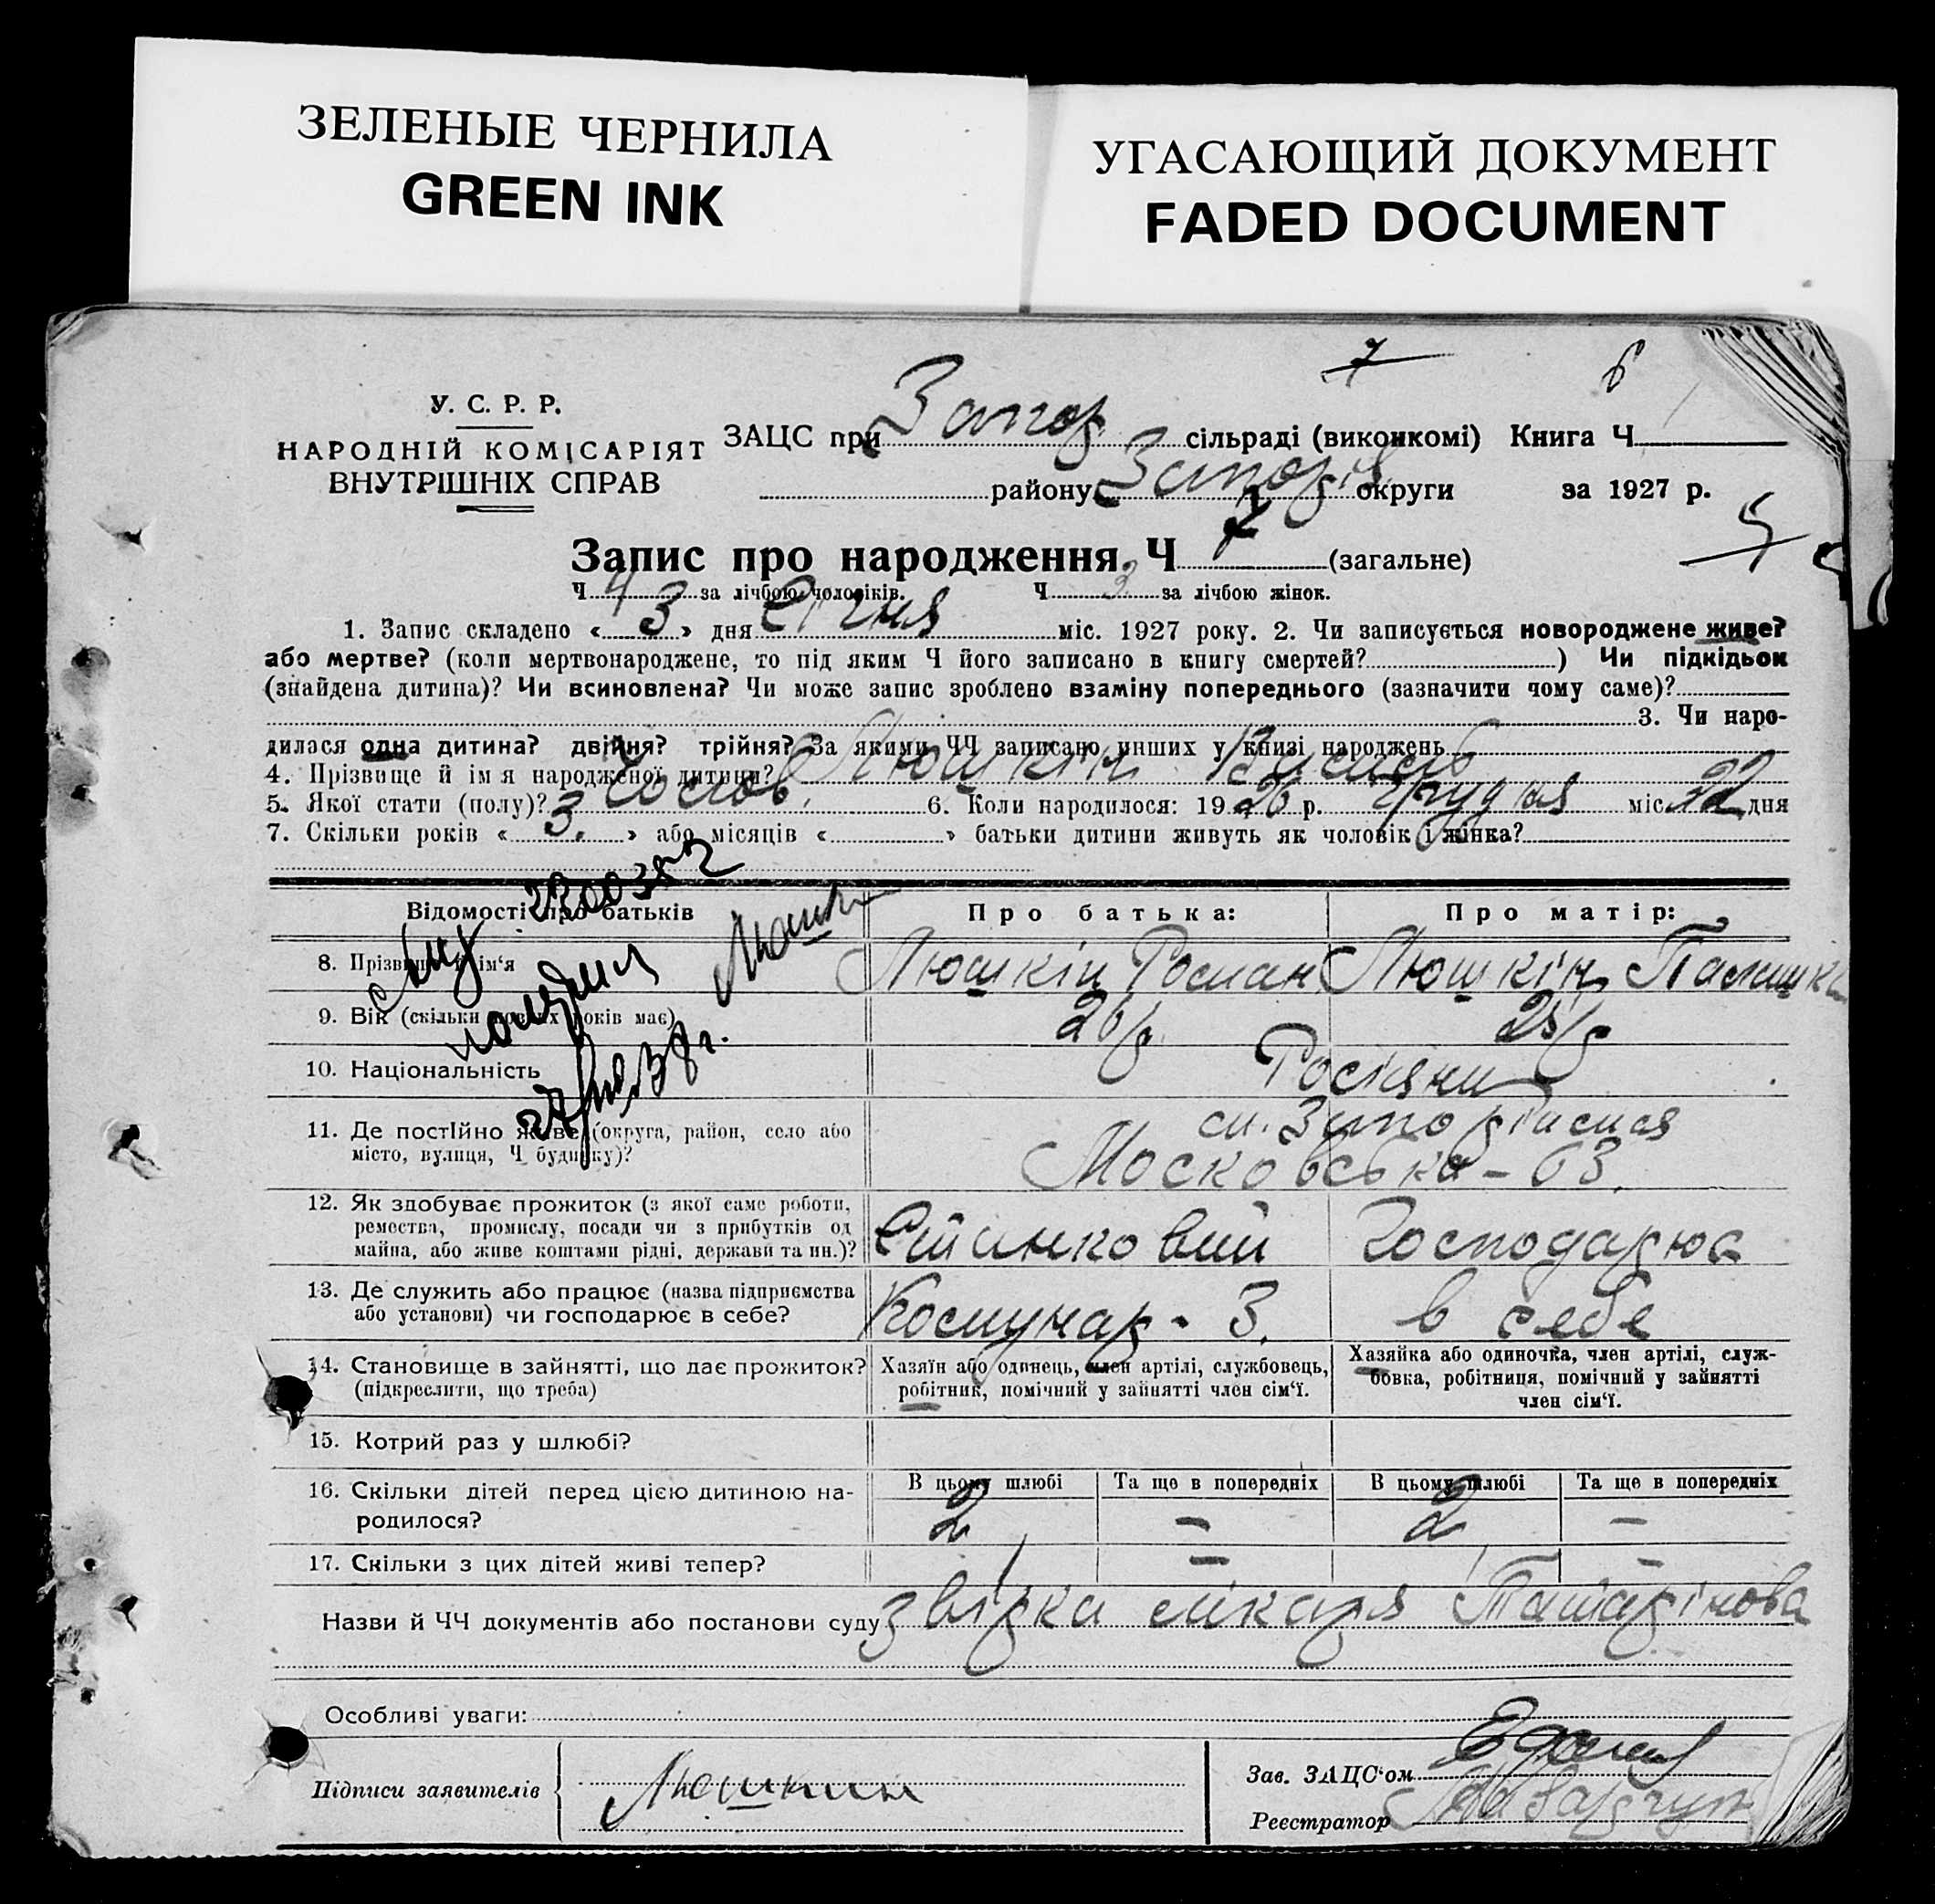 ЗЕЛЕНЫЕ ЧЕРНИЛА
GREEN INK
УГАСАЮЩИЙ ДОКУМЕНТ
FADED DOCUMENT
7
6
У. С. Р. Р.
НАРОДНІЙ КОМІСАРІЯТ
ВНУТРІШНІХ СПРАВ
ЗАЦС при Запор сільраді (виконкомі) Книга Ч
району Запоріз округи за 1927 р.
5
Запис про народження Ч 7 (загальне)
Ч 4 за лічбою чоловіків. Ч 3 за лічбою жінок.
1. Запис складено « 3 » дня Січня міс. 1927 року. 2. Чи записується новороджене живе?
або мертве? (коли мертвонароджене, то під яким Ч його записано в книгу смертей?) Чи підкідьок
(знайдена дитина)? Чи всиновлена? Чи може запис зроблено взаміну попереднього (зазначити чому саме)?
3. Чи наро-
дилася одна дитина? двійня? трійня? За якими ЧЧ записано инших у книзі народжень
4. Прізвище й ім я народженої дитини? Люшкін Василь
5. Якої стати (полу)? Чолов. 6. Коли народилося: 1926 р. Грудня міс. 22 дня
7. Скільки років « 3. » або місяців « » батьки дитини живуть як чоловік і жінка?
Відомості про батьків
Про батька: Про матір:
8. Прізвище й ім‘я Люшкін Роман Люшкін
9. Вік (скільки повних років має) 26 р. 25 р
10. Національність Росіяни
11. Де постійно живе (округа, район, село або
місто, вулиця, Ч будинку)?
Московська - 63.
12. Як здобуває прожиток (з якої саме роботи,
ремества, промислу, посади чи з прибутків од
майна, або живе коштами рідні, держави та ин.)?
Станковий Господарює
13. Де служить або працює (назва підприємства
або установи) чи господарює в себе?
Комунар - З. в себе
14. Становище в зайнятті, що дає прожиток?
(підкреслити, що треба)
Хазяїн або одинець, член артілі, службовець,
робітник, помічний у зайнятті член сім‘ї.
Хазяйка або одиночка, член артілі, служ-
бовка, робітниця, помічний у зайнятті
член сім‘ї.
15. Котрий раз у шлюбі?
16. Скільки дітей перед цією дитиною на-
родилося?
В цьому шлюбі Та ще в попередніх В цьому шлюбі Та ще в попередніх
2 — 2 —
17. Скільки з цих дітей живі тепер? / — / —
Назви й ЧЧ документів або постанови суду звірка лікаря Татарінова
Особливі уваги:
Підписи заявителів Люшкин
Зав. ЗАЦС‘ом
Реєстратор